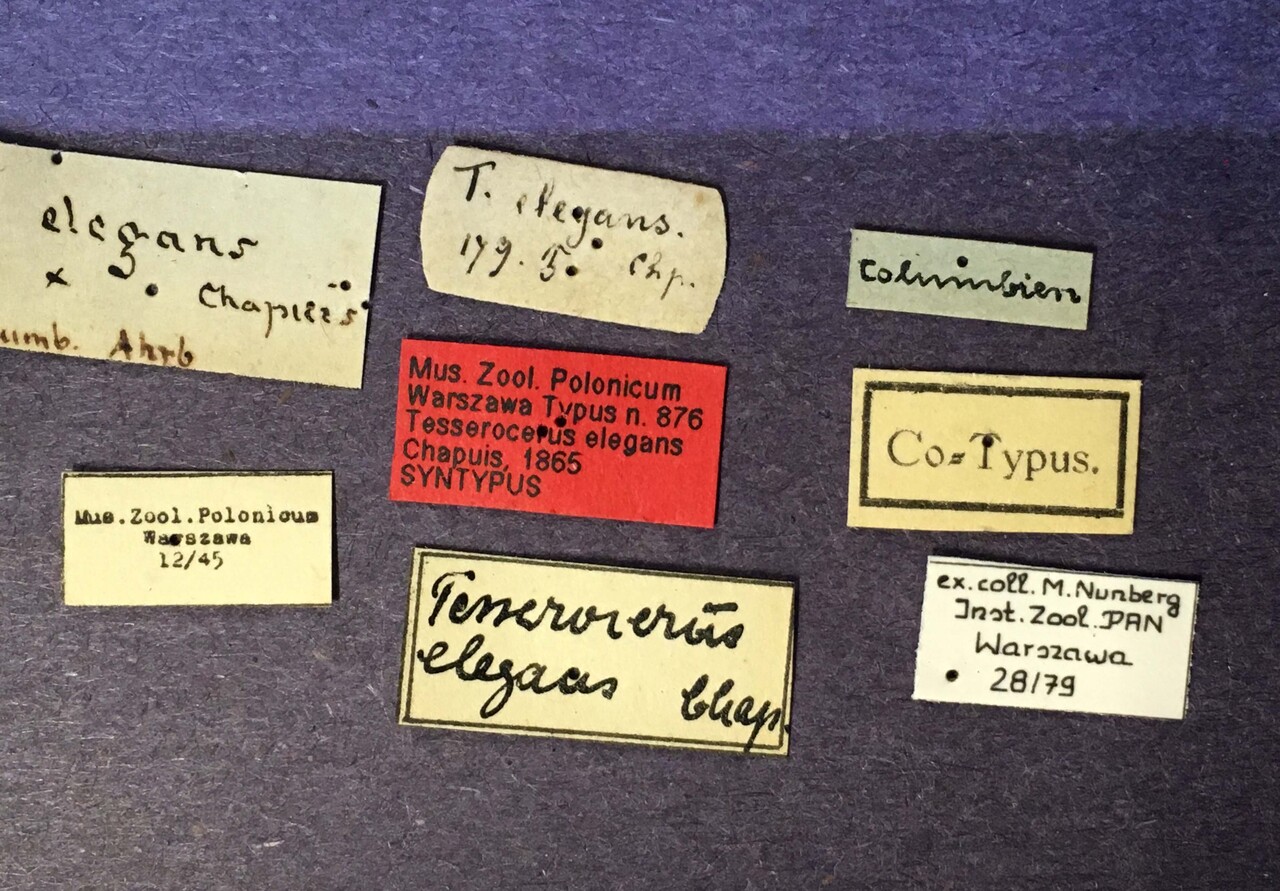 elegans
x Chapuis
umb. Ahrb
T. elegans.
179. 5. Chp.
Columbien
Mus. Zool. Polonicum
Warszawa Typus n. 876
Tesserocerus elegans
Chapuis, 1865
SYNTYPUS
Co-Typus.
Mus.Zool.Polonicum
Warszawa
12/45
Tesserocerus
elegans Chap.
ex.coll. M. Nunberg
Inst. Zool. PAN
Warszawa
28/79